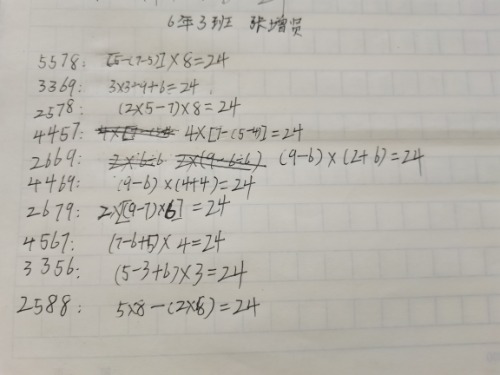 6年3班 张增贤
5578: [5-(7-5)]×8=24
3369: 3×3+9+6=24
2578: (2×5-7)×8=24
4457: 4×[7-(5-4)]=24
2669: (9-6)×(2+6)=24
4469: (9-6)×(4+4)=24
2679: 2×[(9-7)×6]=24
4567: (7-6+5)×4=24
3356: (5-3+6)×3=24
2588: 5×8-(2×8)=24